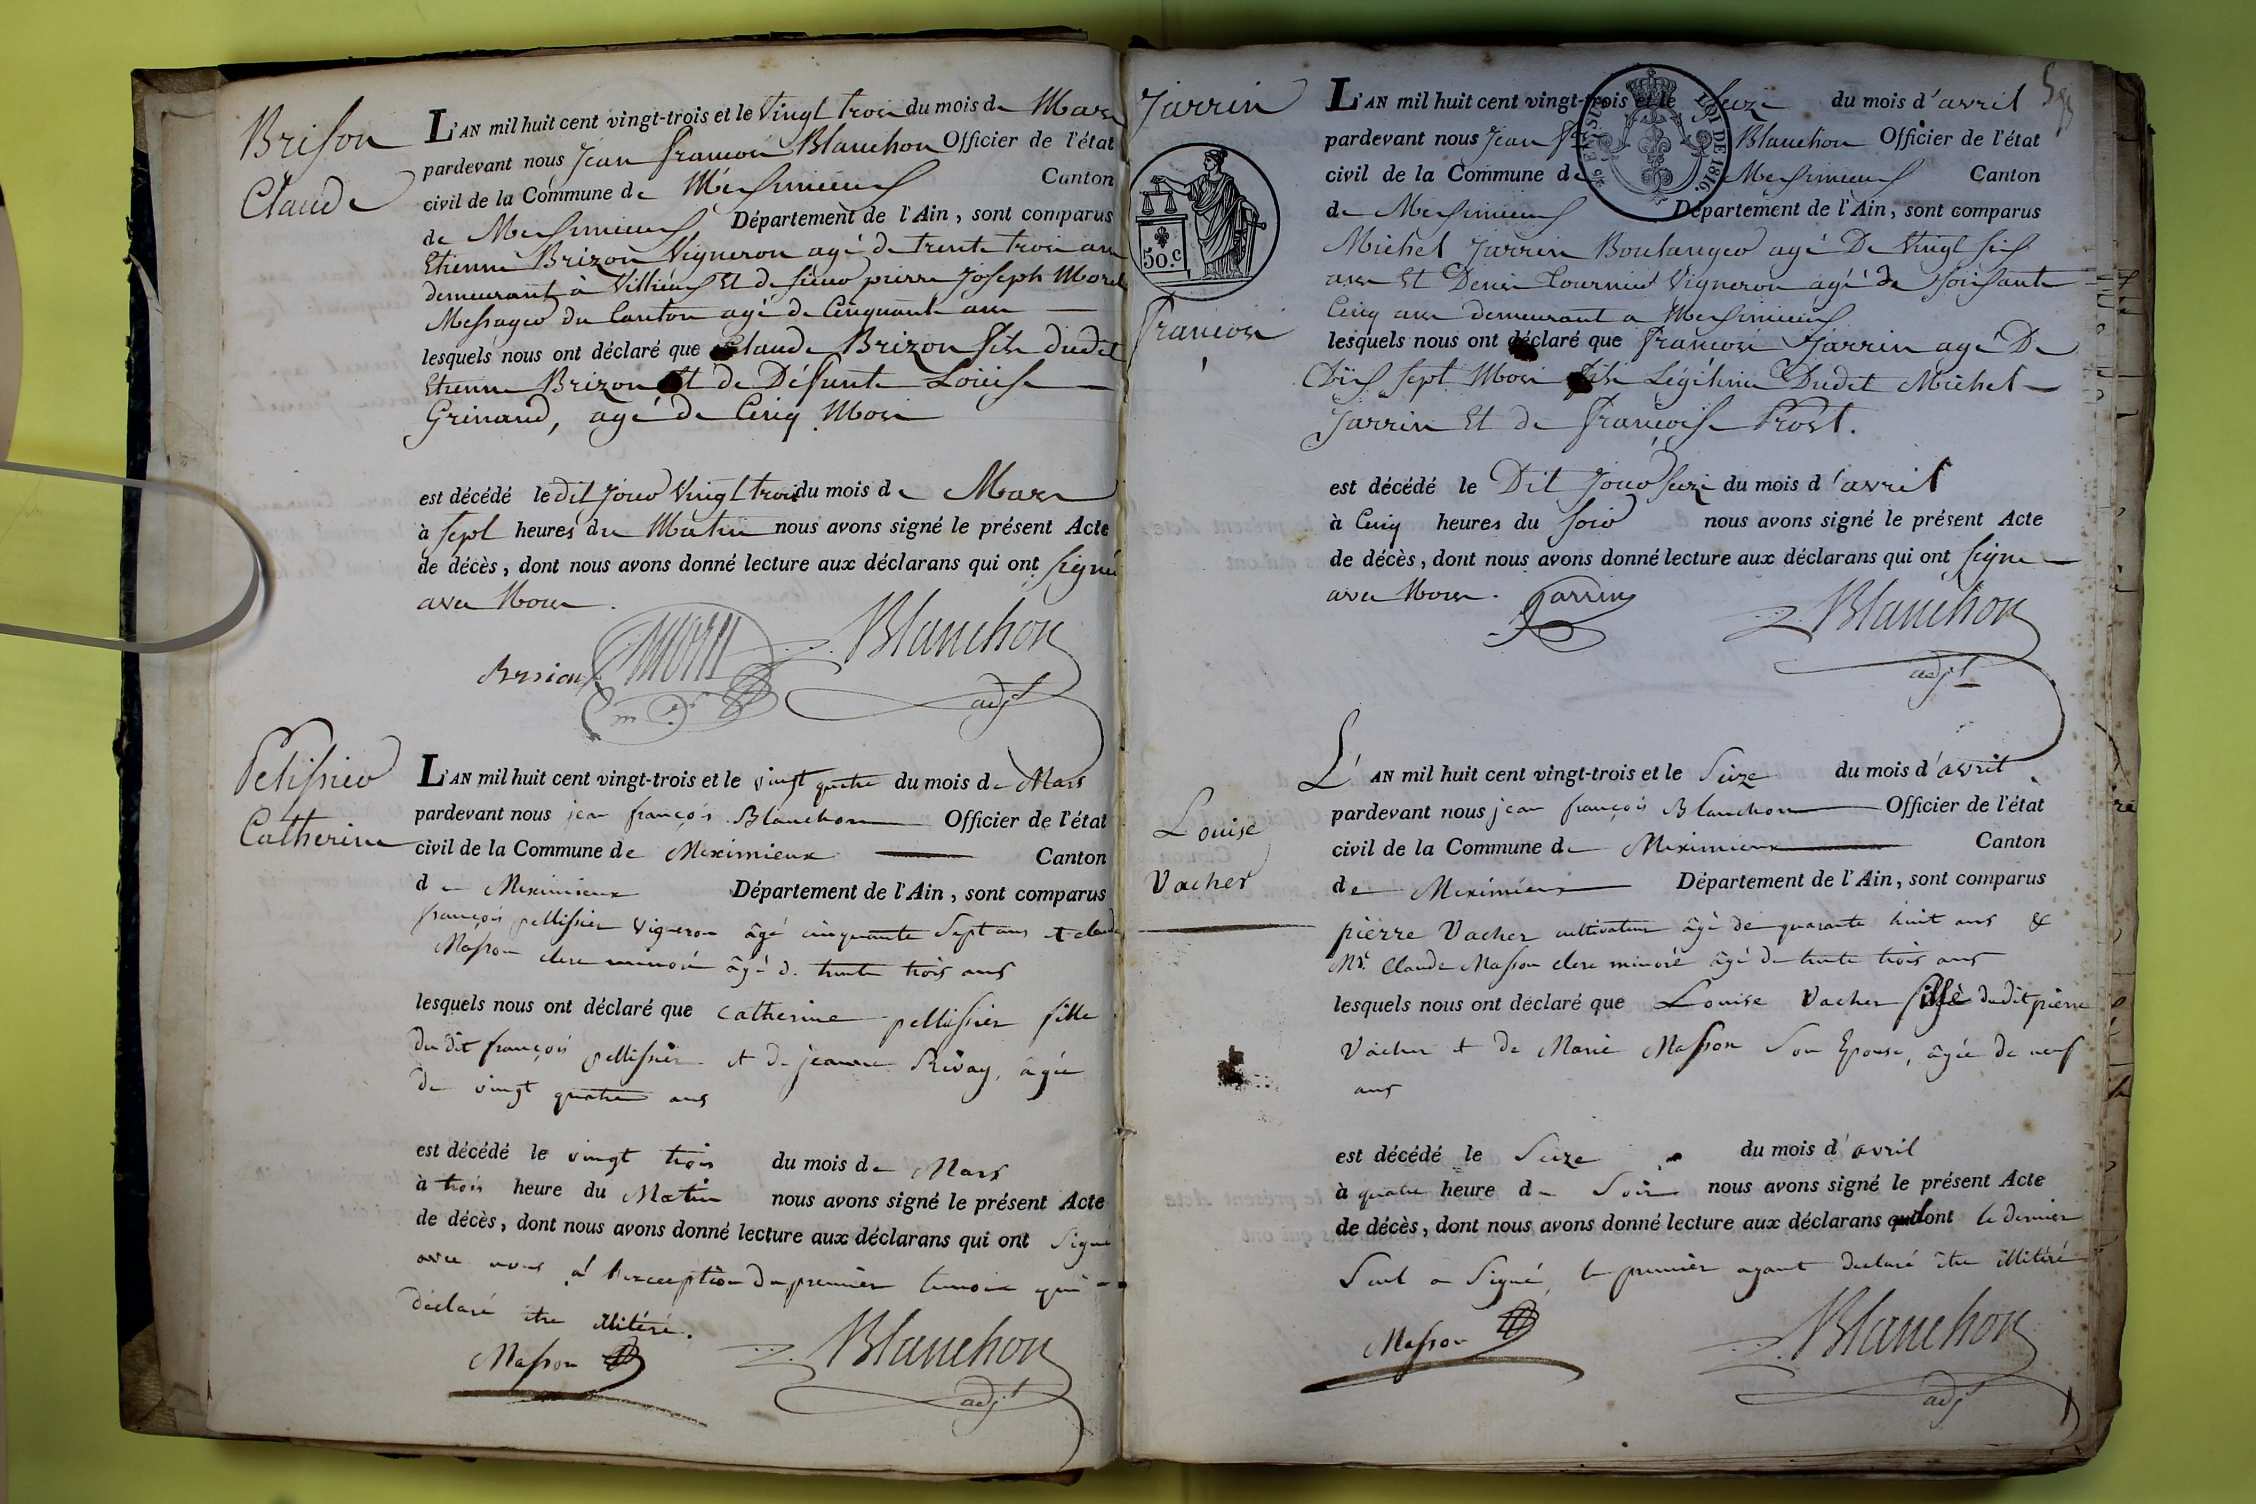 Brison
Claude
L'AN mil huit cent vingt-trois et le Vingt trois du mois de Mars
pardevant nous Jean françois Blanchon Officier de l'état
civil de la Commune de Meximieux Canton
de Meximieux Département de l'Ain, sont comparus
Etienne Brizon Vigneron agé de trente trois ans
demeurant à Villieux Et de sieur pierre Joseph Morel
Messager du Canton agé de Cinquante ans
lesquels nous ont déclaré que Claude Brizon fils dudit
Etienne Brizon Et de Défunte Loüise
Grinand, agé de Cinq Mois
est décédé le dit Jour Vingt trois du mois de Mars
à sept heures du Matin nous avons signé le présent Acte
de décès, dont nous avons donné lecture aux déclarans qui ont signé
avec Nous.
Brsion Blanchon
adjt
Pelissier
Catherine
L'AN mil huit cent vingt-trois et le vingt quatre du mois de Mars
pardevant nous jean françois Blanchon Officier de l'état
civil de la Commune de Meximieux Canton
de Meximieux Département de l'Ain, sont comparus
françois pellissier vigneron âgé cinquante Sept ans et claude
Masson clerc minoré âgé de trente trois ans
lesquels nous ont déclaré que Catherine pellissier fille
du dit françois pellissier et de jeanne Rivay, âgée
de vingt quatre ans
est décédé le vingt trois du mois de Mars
à trois heure du Matin nous avons signé le présent Acte
de décès, dont nous avons donné lecture aux déclarans qui ont signé
avec nous à l'exception du premier temoin qui a
déclaré être illitéré.
Masson Blanchon
adjt
Jarrin
50.c
françois
595
LOI DE 1816.
L'AN mil huit cent vingt-trois et le Seize du mois d'avril
pardevant nous Jean Blanchon Officier de l'état
civil de la Commune de Meximieux Canton
de Meximieux Département de l'Ain, sont comparus
Michel Jarrin Boulanger agé De Vingt six
ans Et Denis Cournier Vigneron agé de Soixante
Cinq ans demeurant a Meximieux
lesquels nous ont déclaré que françois Jarrin agé De
Dix sept Mois fils Légitime Dudit Michel
Jarrin Et de françoise Prost.
est décédé le Dit Jour seize du mois d'avril
à Cinq heures du soir nous avons signé le présent Acte
de décès, dont nous avons donné lecture aux déclarans qui ont signe
avec Nous. Jarrin Blanchon
adjt
Louise
Vacher
L'AN mil huit cent vingt-trois et le Seize du mois d'avril
pardevant nous jean françois Blanchon Officier de l'état
civil de la Commune de Meximieux Canton
de Meximieux Département de l'Ain, sont comparus
pierre Vacher cultivateur âgé de quarante huit ans &
Mr. Claude Masson clerc minoré âgé de trente trois ans
lesquels nous ont déclaré que Louise Vacher fille dudit pierre
Vacher et de Marie Masson Son Epouse, âgée de neuf
ans
est décédé le Seize du mois d'avril
à quatre heure de Soir nous avons signé le présent Acte
de décès, dont nous avons donné lecture aux déclarans dont le dernier
Seul a Signé, le premier ayant declaré être illitéré
Masson Blanchon
adjt